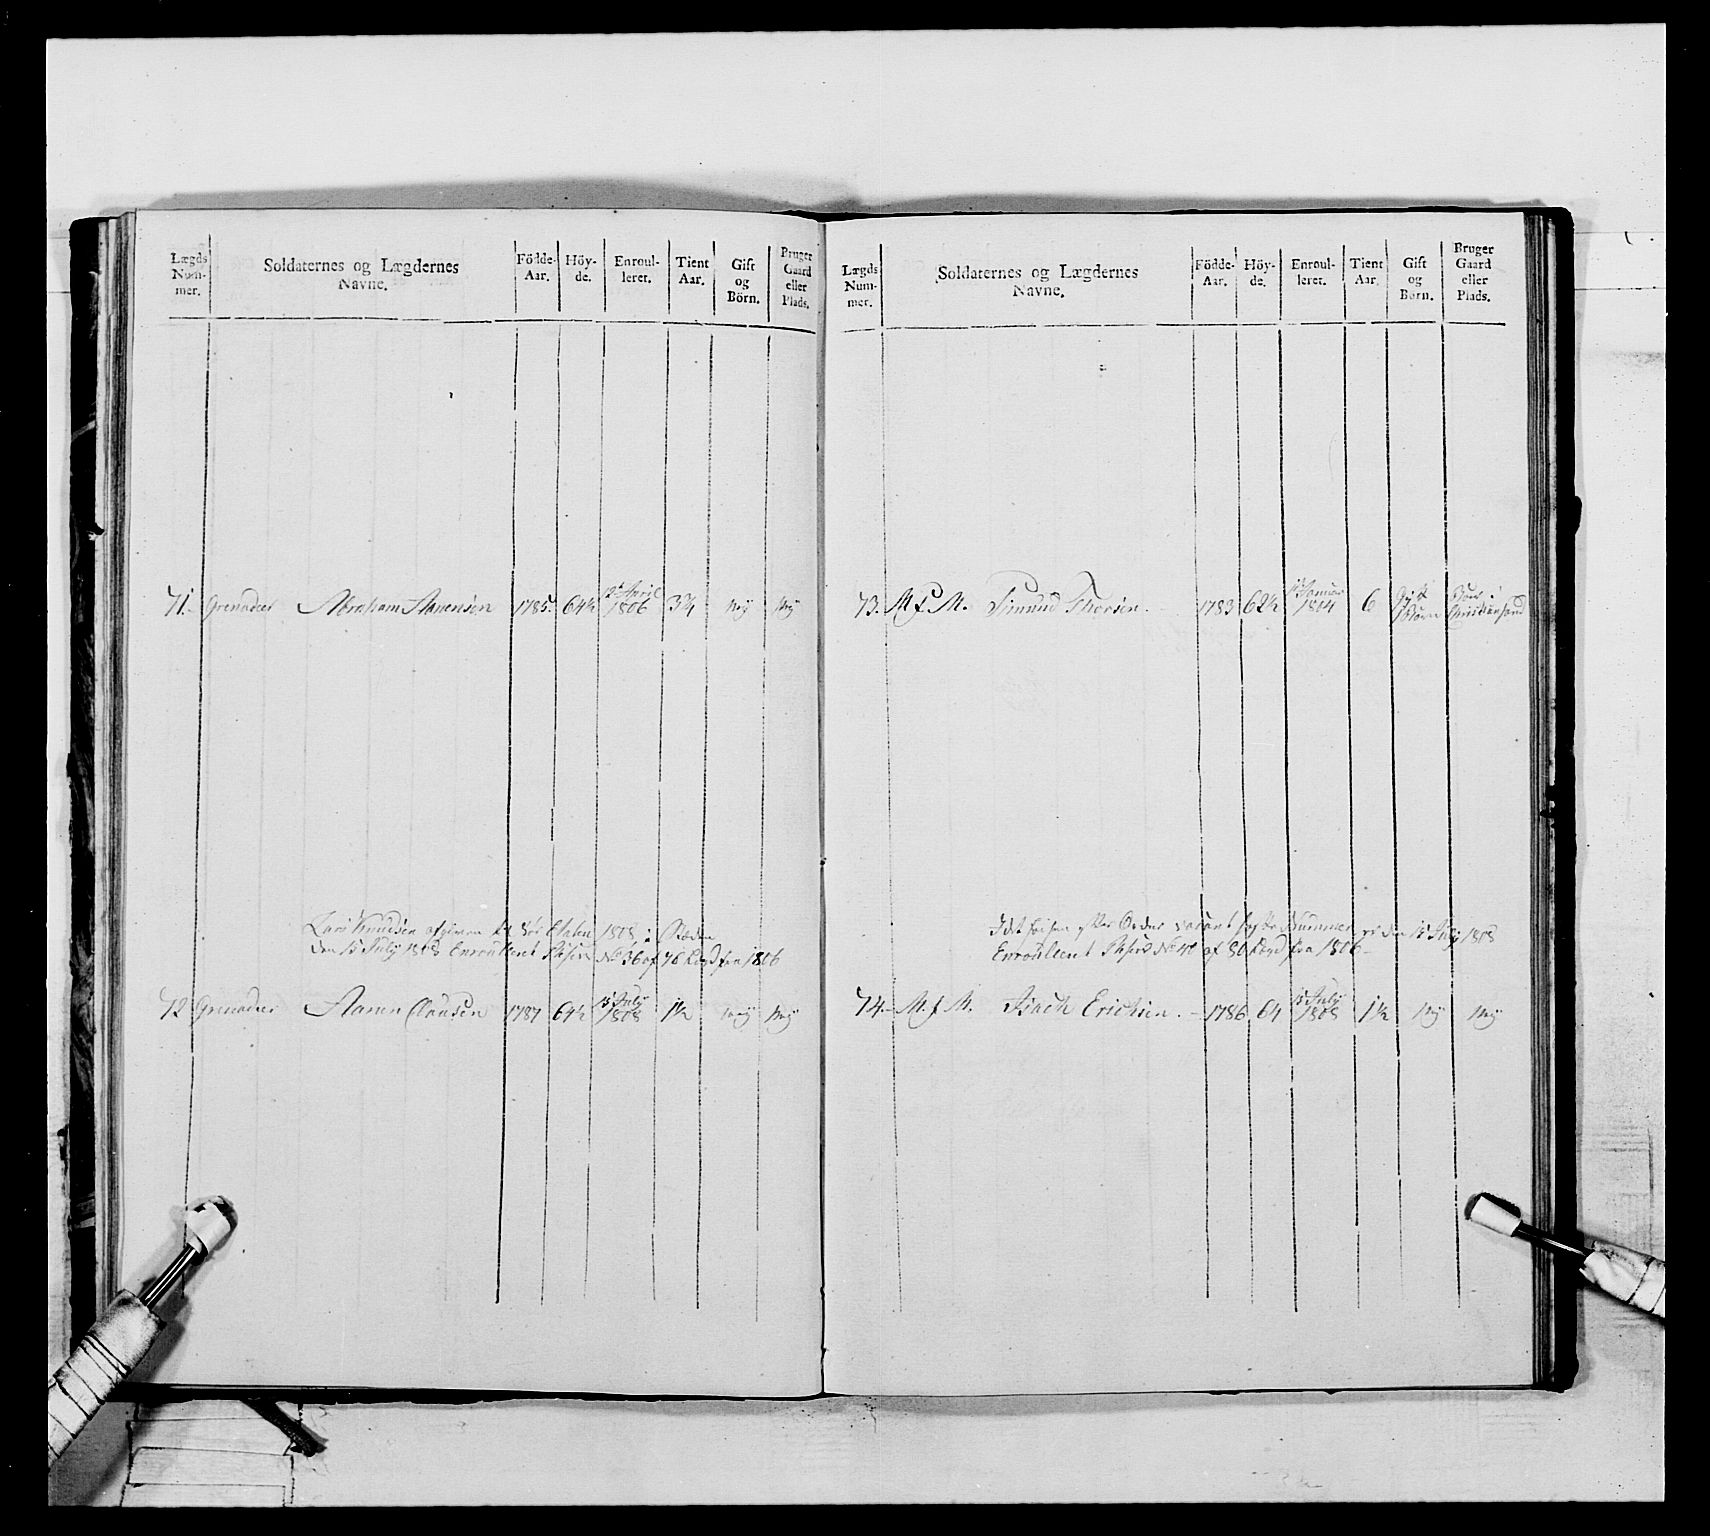 Lægds Num- mer.
Soldaternes og Lægdernes Navne.
Födde- Aar.
Höy- de.
Enroul- leret.
Tient Aar.
Gift og Börn.
Bruger Gaard eller Plads.
71. Grenadeer Abraham Aanensen 1785. 64½ 12 April 1806 3¾ Nej Nej
Lars Knudsen afgiven 1808
den 15 July 1808 Enroulleret No 36 af 76 Lægd fra 1806
72 Grenadeer Aanen Clausen 1787 64½ 15 July 1808 1½ Nej Nej
Lægds Num- mer.
Soldaternes og Lægdernes Navne.
Födde- Aar.
Höy- de.
Enroul- leret.
Tient Aar.
Gift og Börn.
Bruger Gaard eller Plads.
73. M f M. Simund Thorsen. 1783 62½ Januar 1804 6 Gift Børn Christiansand
efter Ordre vacant Nummer er den 15 July 1808
Enroulleret af 80 Lægd fra 1806
74. M. f M. Erichsen. 1786 64 15 July 1808 1½ Nej Nej